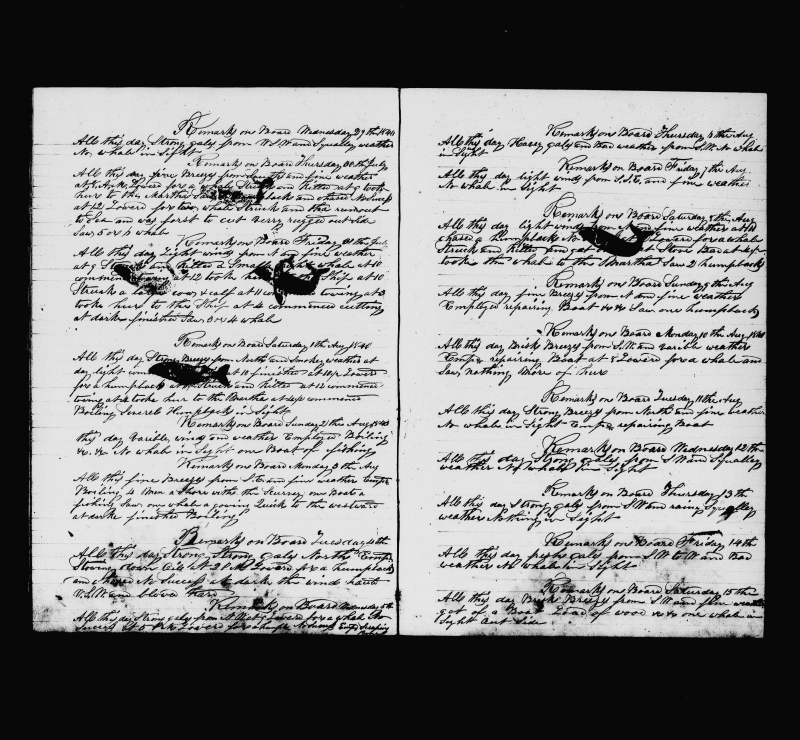 Remarks on Board Wednesday 29th 1840
All this day Strong galy from W.S.W and Squalley weather
No whale in Sight
Remarks on Board Thursday 30th July
All this day fine Breezy from and fine weather
at 8 A.M. Lowerd for a Struck and Killed at 9 took
hur to the Martha Saw back and chased No Sucess
at 12 Lowerd for two whale Struck one the run out
to Sea and was forst to cut Verry rugged out Side
Saw 5 or 6 whale
Remarks on Board Friday 31th July
All this day Light winds from N an fine weather
at 9 Struck and Killed a Small whale at 10
commenced towing at 2 took hur to the Ship at 10
Struck a large cow & calf at 11 towing at 3
took hur to the Ship at 4 commenced cutting
at dark finished Saw 3 or 4 whale
Remarks on Board Saturday 1th Aug 1840
All this day Strong Breezy from North and Smokey weather at
day light at 10 finished at 10 Lowerd
for a humpback Struck and Killed at 12 commence
towing at 2 took hur to the Martha at 4 commenced
Boiling Severel Humpback in Sight
Remarks on Board Sunday 2th Aug 1840
this day Varible wind and weather Employed Boiling
&c. &c. No whale in Sight one Boat of fishing
Remarks on Board Monday 3th Aug
All this fine Breezy from S.E and fine weather Empt
Boiling 4 Men a Shore withe the Scurvey one Boat a
fishing Saw one whale a gowing Quick to the westward
at dark finished Boiling
Remarks on Board Tuesday 4th
All this day Strong Strong galy North Empt
Stowing down Oil at 2 P.M Lowerd for a humpback
and chased No Success at dark the wind hauld
W.S.W and blowd hard
Remarks on Board Wednesday 5th
All this day Strong galy from Lowerd for a whale No
Sucess at 5 P.M Lowerd for a humpb No Success
Remarks on Board Thursday 6th Aug
All this day Heavy galy and bad weather from S.W. No whale
in Sight
Remarks on Board Friday 7th Aug
All this day light winds from S.S.E. and fine weather
No whale in Sight
Remarks on Board Saturday 8th Aug
All this day light winds from N an fine weather at 10
chased a humpback No Lowerd for a whale
Struck and Killed Stove Boat at 4 p
took the whale to the Martha Saw 2 humpbacks
Remarks on Board Sunday 9th Aug
All this day fine Breezy from N an fine weather
Employed repairing Boat &c &c Saw one humpback
Remarks on Board Monday 10th Aug 1840
All this day Brisk Breezy from S.W. and Varible weather
Empd repairing Boat at 8 Lowerd for a whale and
Saw nothing More of hur
Remarks on Board Tuesday 11th Aug
All this day Strong Breezy from North and fine weather
No whale in Sight Empd repairing Boat
Remarks on Board Wednesday 12th
All this day Strong galy from S W and Squalley
weather No whale in Sight
Remarks on Board Thursday 13th
All this day Strong galy from S.W and rainy Squalley
weather Nothing in Sight
Remarks on Board Friday 14th
All this day fresh galy from S W to W and Bad
weather No whale in Sight
Remarks on Board Saturday 15th
All this day Brisk Breezy from S W and fine weather
got of a Boat Load of wood &c &c one whale in
Sight Out Side